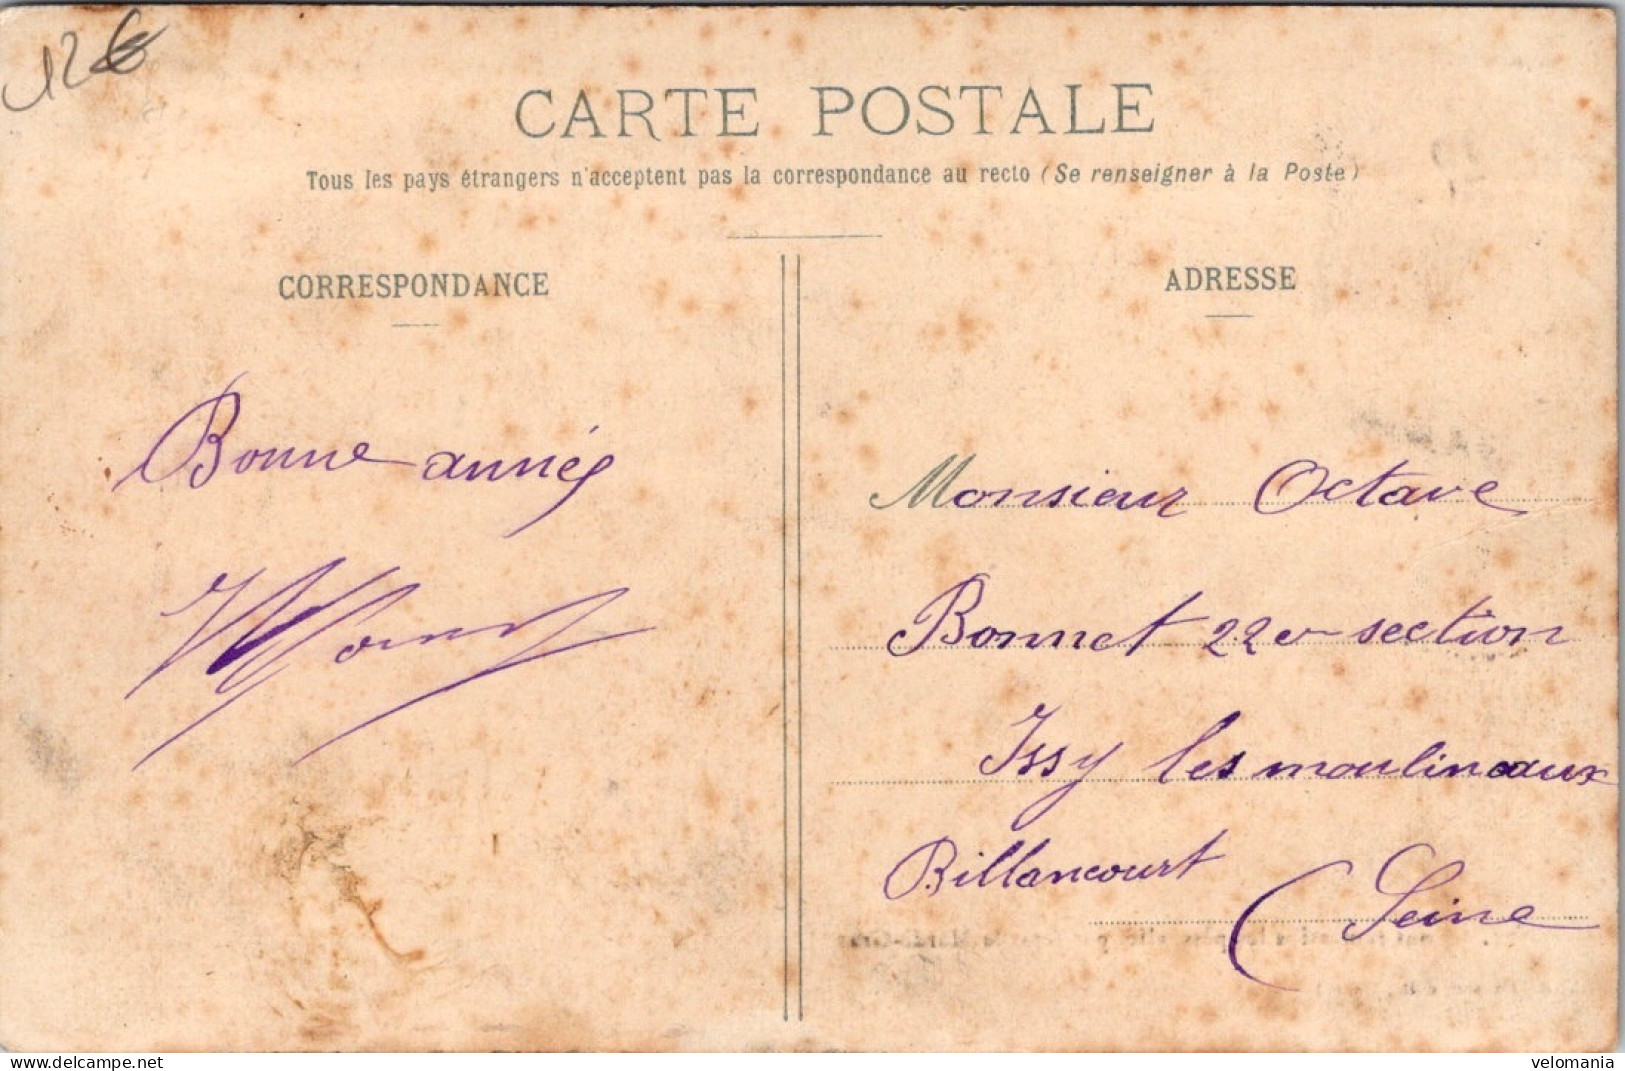 12€
CARTE POSTALE
Tous les pays étrangers n'acceptent pas la correspondance au recto (Se renseigner à la Poste)
CORRESPONDANCE
Bonne année
ADRESSE
Monsieur Octave
Bonnet 22e section
Issy les moulineaux
Billancourt
(Seine
delcampe.net
velomania